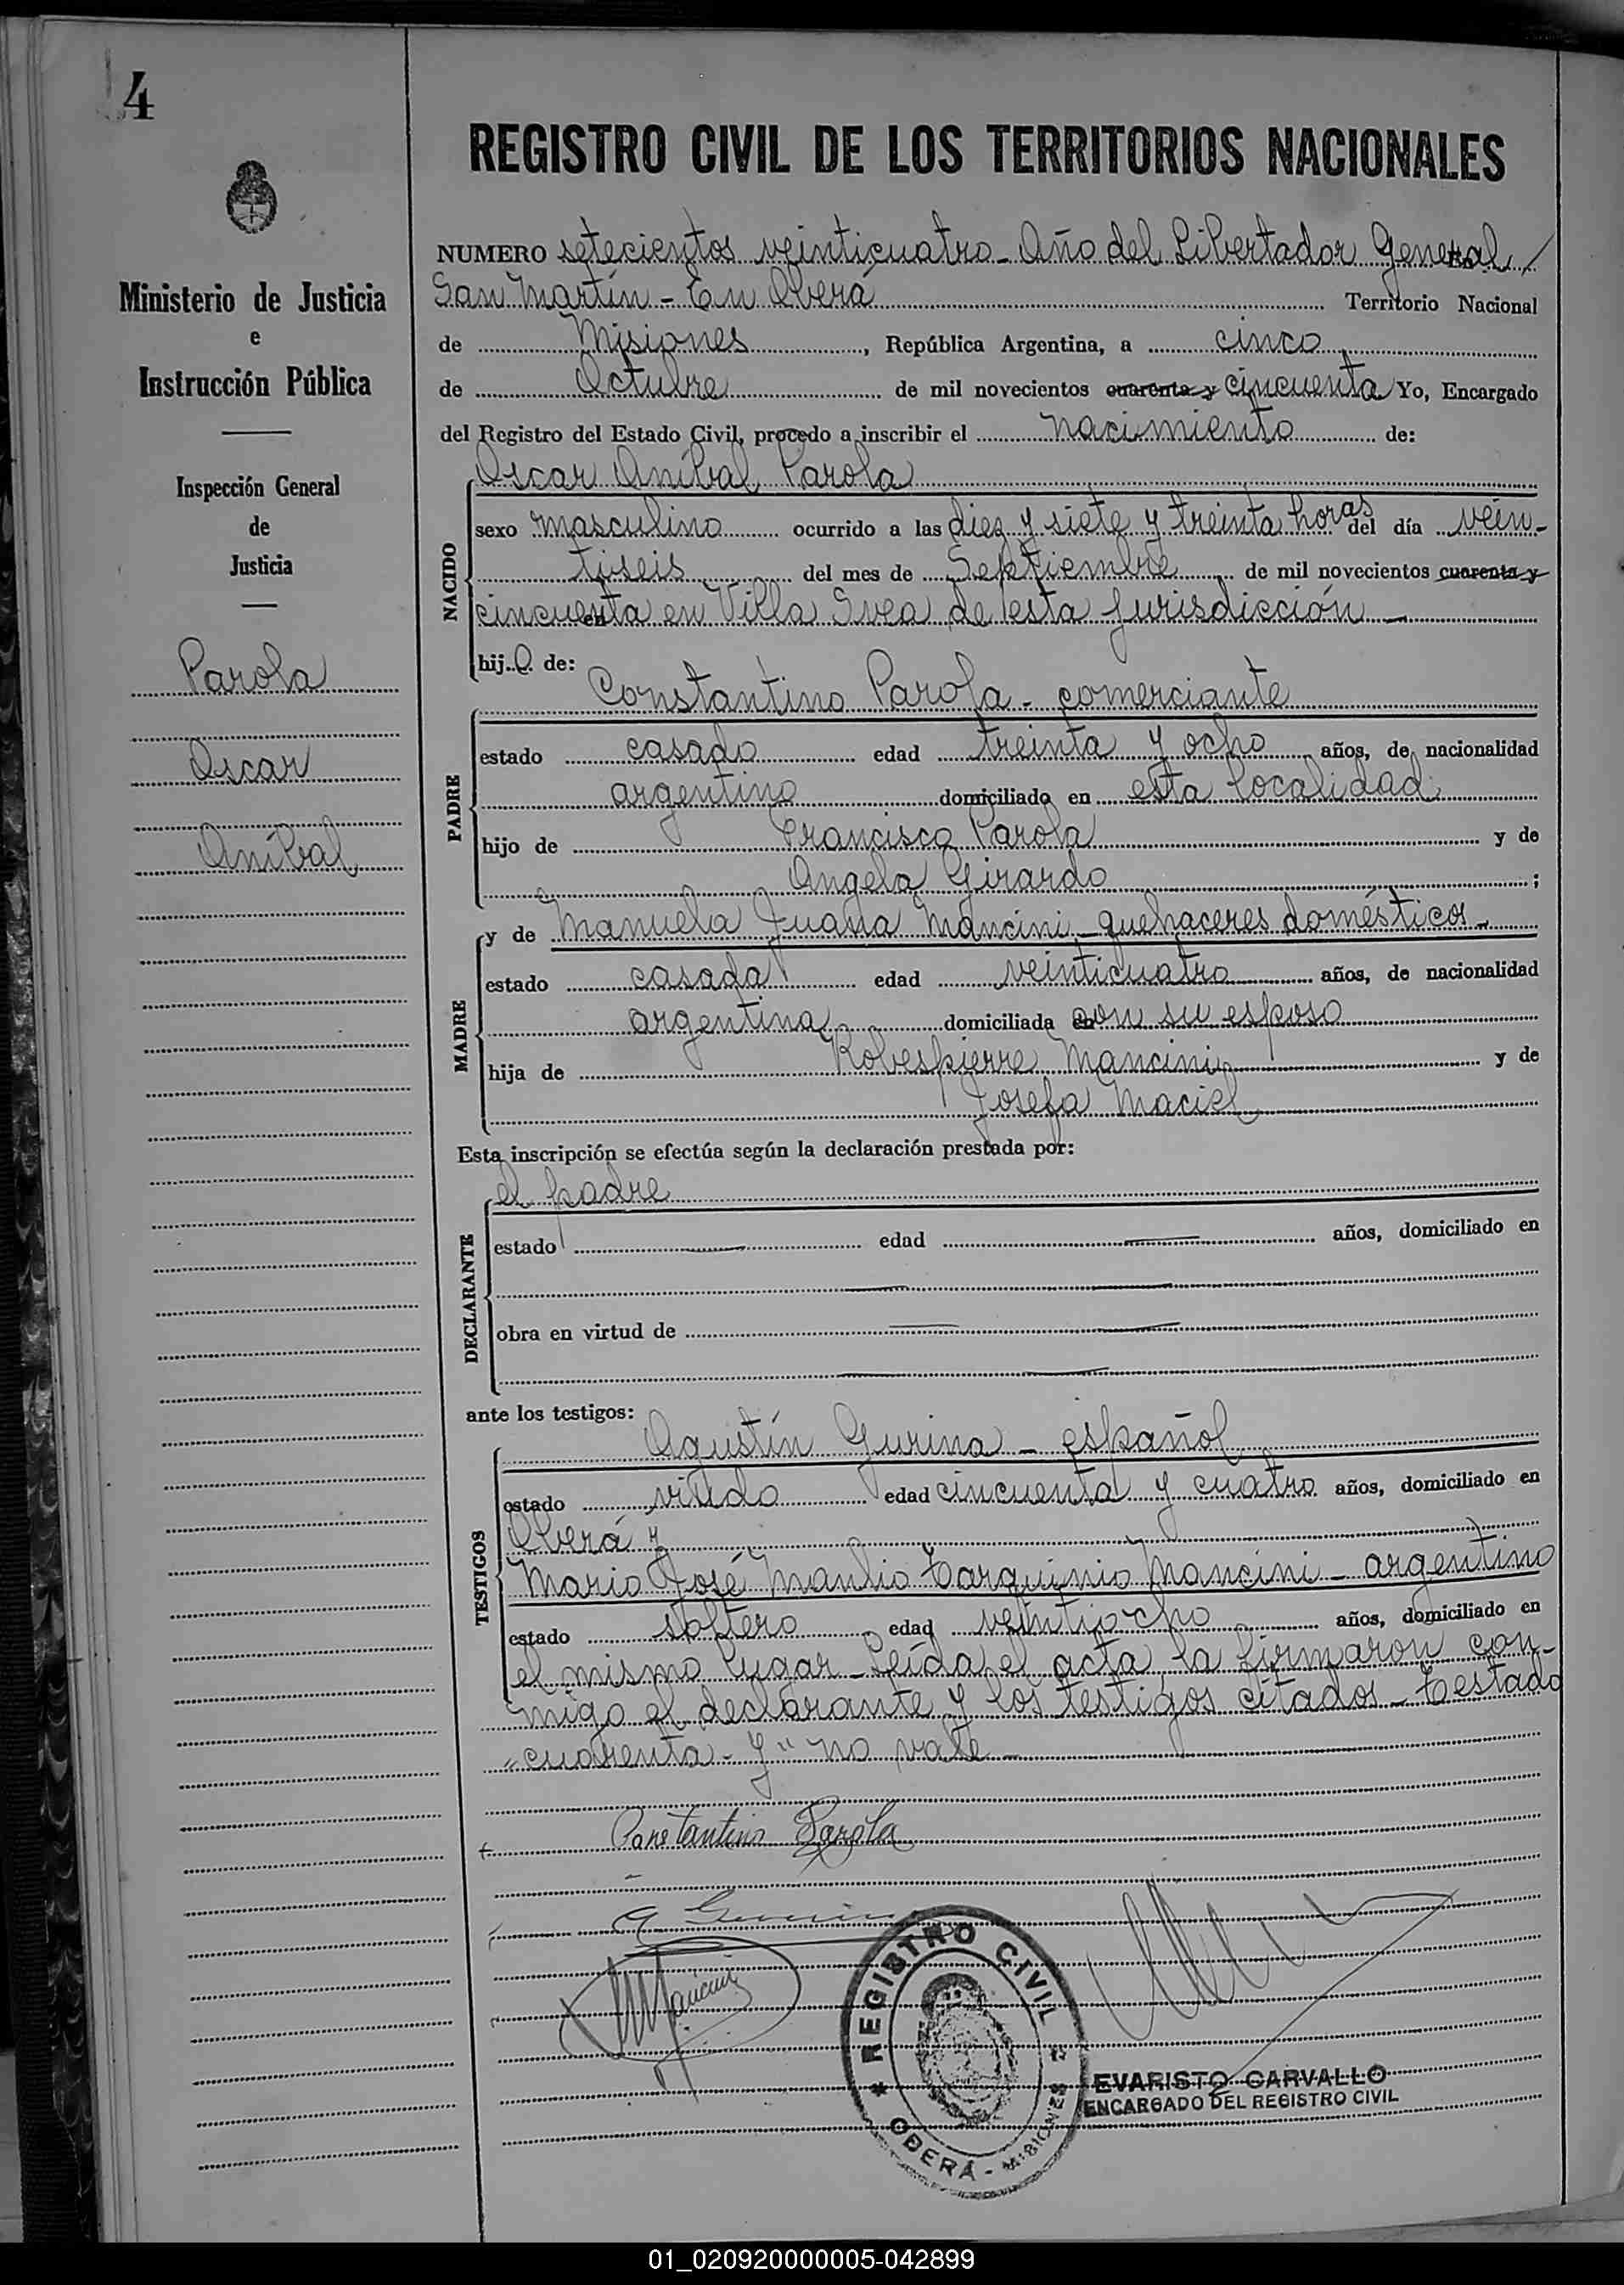 4
Ministerio de Justicia
e
Instrucción Pública
Inspección General
de
Justicia
Parola
Oscar
Aníbal
REGISTRO CIVIL DE LOS TERRITORIOS NACIONALES
NUMERO setecientos veinticuatro - Año del Libertador General
San Martín - En Oberá Territorio Nacional
de Misiones, República Argentina, a cinco
de Octubre de mil novecientos cuarenta y cincuenta Yo, Encargado
del Registro del Estado Civil, procedo a inscribir el nacimiento de:
Oscar Aníbal Parola
NACIDO
sexo masculino ocurrido a las diez y siete y treinta horas del día vein-
tiseis del mes de Septiembre de mil novecientos cuarenta y
cincuenta en Villa Svea de esta jurisdicción -
hijo de:
Constantino Parola - comerciante
PADRE
estado casado edad treinta y ocho años, de nacionalidad
argentino domiciliado en esta localidad
hijo de Francisco Parola y de
Angela Girardo ;
MADRE
y de Manuela Juana Mancini - quehaceres domésticos -
estado casada edad veinticuatro años, de nacionalidad
argentina domiciliada con su esposo
hija de Robespierre Mancini y de
Josefa Maciel
Esta inscripción se efectúa según la declaración prestada por:
DECLARANTE
el padre
estado edad años, domiciliado en
obra en virtud de
ante los testigos:
TESTIGOS
Agustín Gurina - español
estado viudo edad cincuenta y cuatro años, domiciliado en
Oberá y
Mario José Manlio Tarquinio Mancini - argentino
estado soltero edad veintiocho años, domiciliado en
el mismo lugar - Leída el acta la firmaron con-
migo el declarante y los testigos citados - Testado
"cuarenta - y" no vale -
Constantino Parola
MMancini
REGISTRO CIVIL
OBERÁ - MISIONES
EVARISTO CARVALLO
ENCARGADO DEL REGISTRO CIVIL
01_020920000005-042899